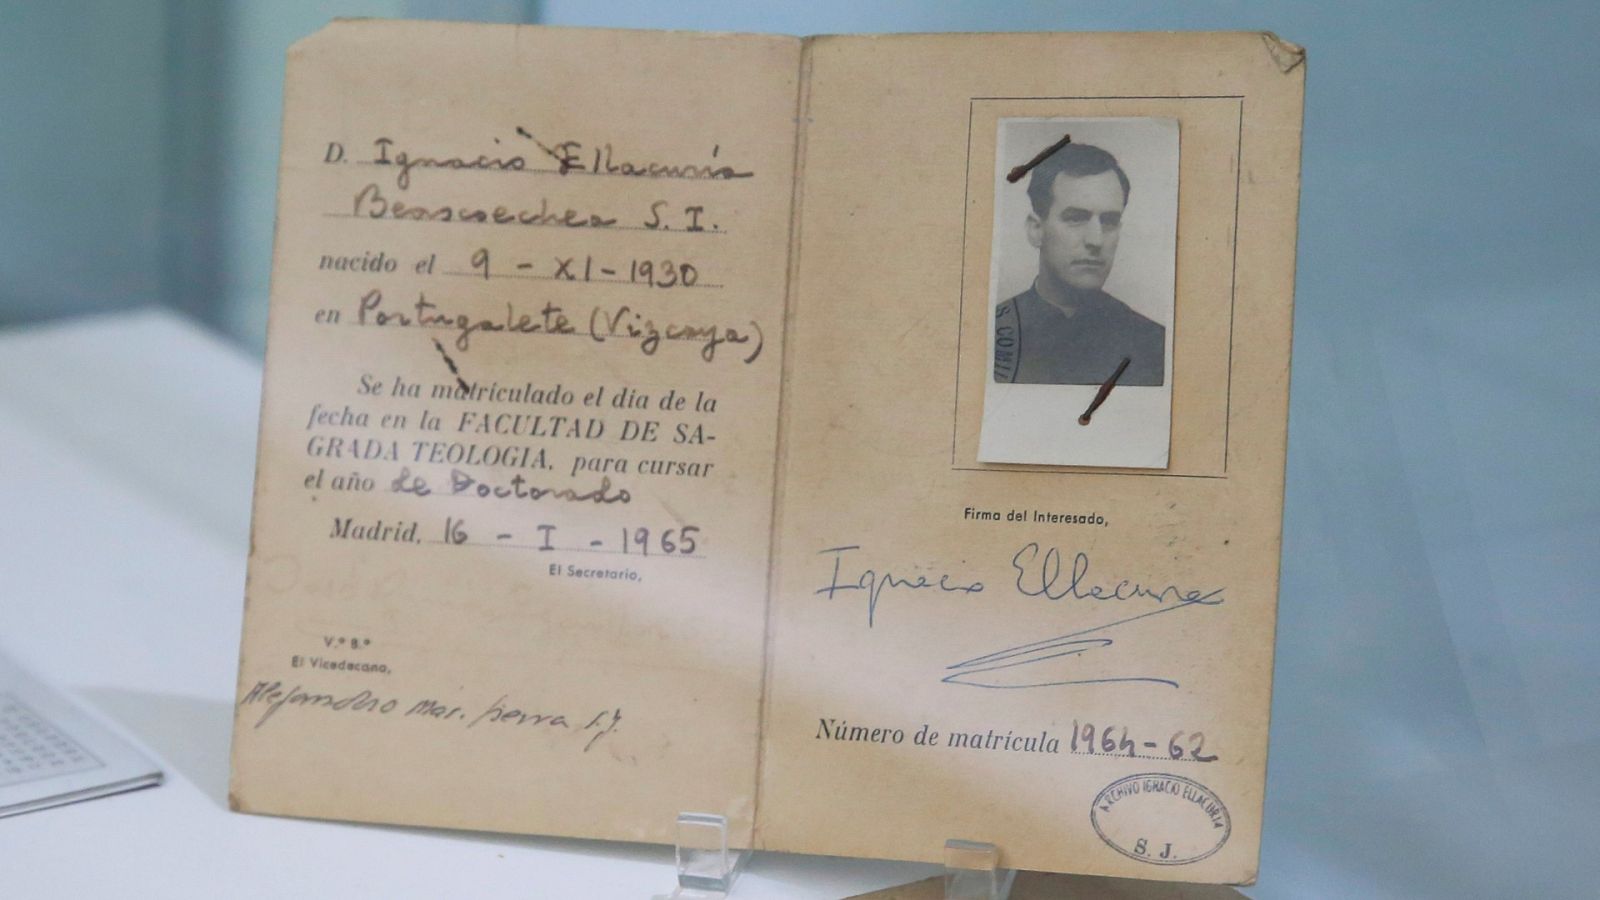 D. Ignacio Ellacuría
Beascoechea S. I.
nacido el 9 - XI - 1930
en Portugalete (Vizcaya)
Se ha matriculado el día de la
fecha en la FACULTAD DE SA-
GRADA TEOLOGIA, para cursar
el año de Doctorado
Madrid, 16 - I - 1965
El Secretario,
V.º B.º
El Vicedecano,
Alejandro Mar. Sierra S.J.
S COMIL
Firma del Interesado,
Ignacio Ellacuria
Número de matrícula 1964-62
ARCHIVO IGNACIO ELLACURIA
S. J.